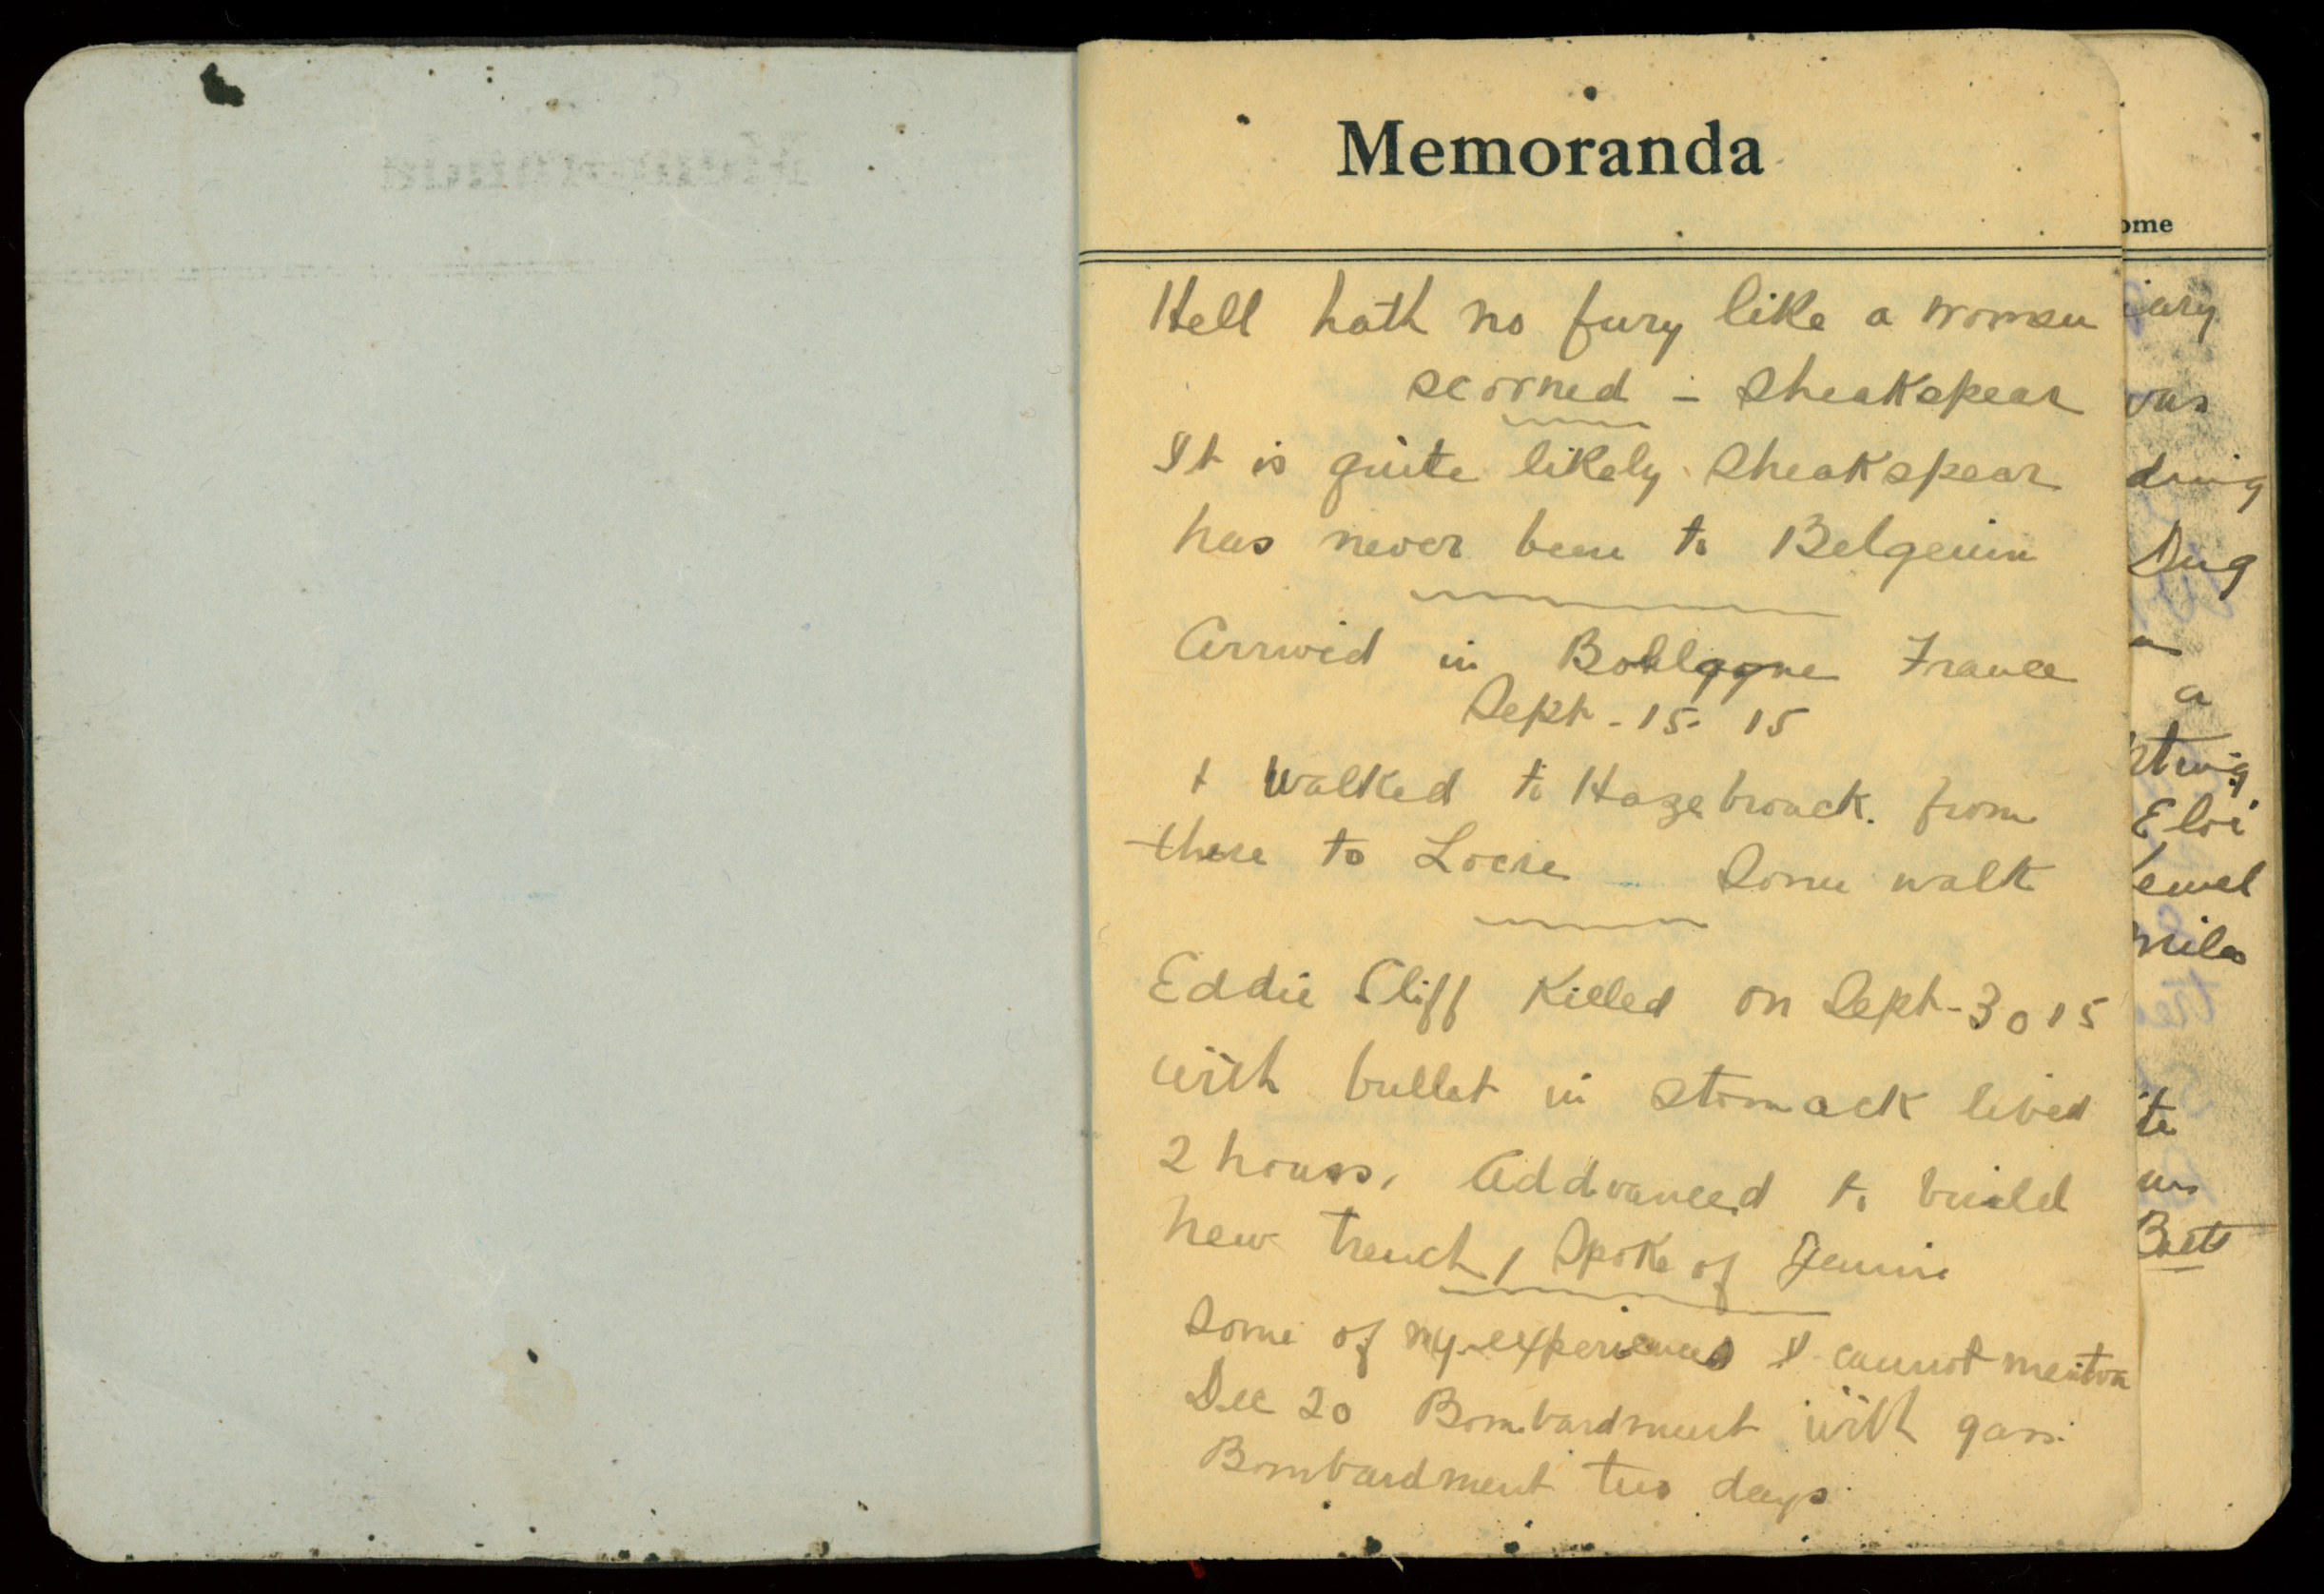 Memoranda
Hell hath no fury like a woman
scorned - Sheakspear
It is quite likely Sheakspear
has never been to Belgeium
Arrived in Boulogne France
Sept - 15. 15
+ walked to Hazebrouck. from
there to Locre Some walk
Eddie Cliff Killed on Sept - 30 15
with bullet in stomack lived
2 hours, Addvanced to build
new trench, Spoke of Jennie
Some of my experiences I cannot mention
Dec 20 Bombardment with gass.
Bombardment two days
ome
iary
was
ding
Dug
a
pting
Eloi
miles
te